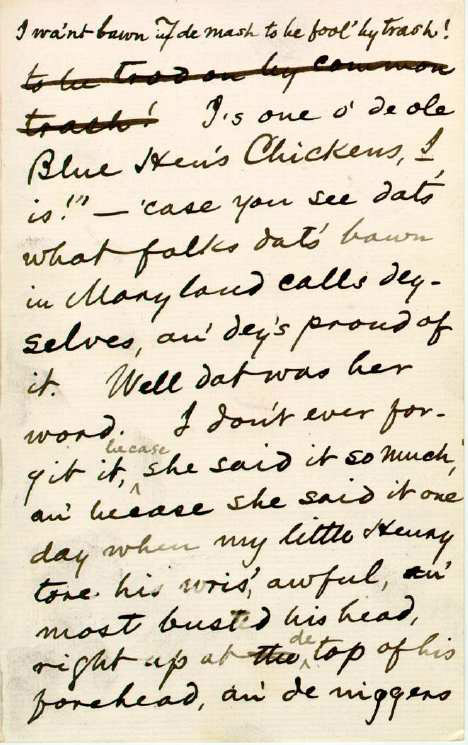 I wa'nt bawn in de mash to be fool' by trash!
to be trod on by common
trash! I's one o' de ole
Blue Hen's Chickens, I
is!" — 'case you see dat's
what folks dat's bawn
in Maryland calls dey-
selves, an' dey's proud of
it. Well dat was her
word. I don't ever for-
git it, becase she said it so much,
an' becase she said it one
day when my little Henry
tore his wris', awful, an'
most busted his head,
right up at the de top of his
forehead, an' de niggers